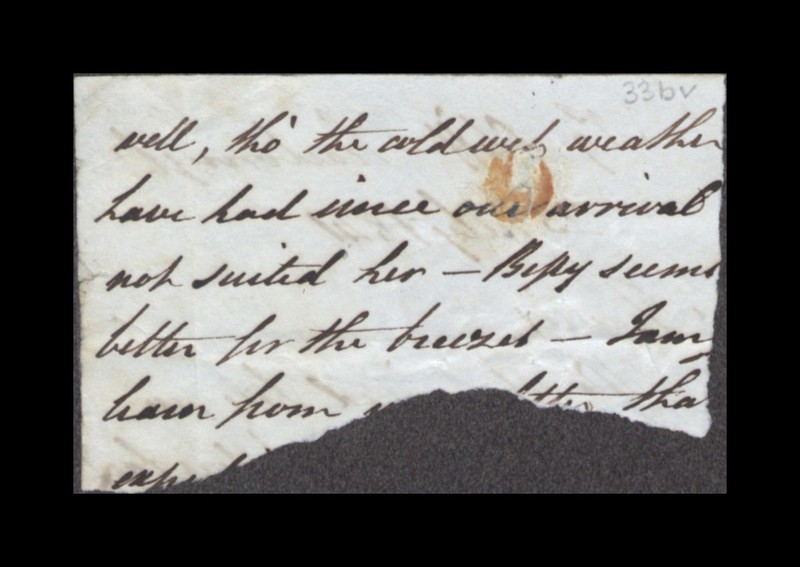 33bv
well, tho' the cold wet weather
have had since our arrival
not suited her — Bessy seems
better for the breezes — I am
learn from letter tha